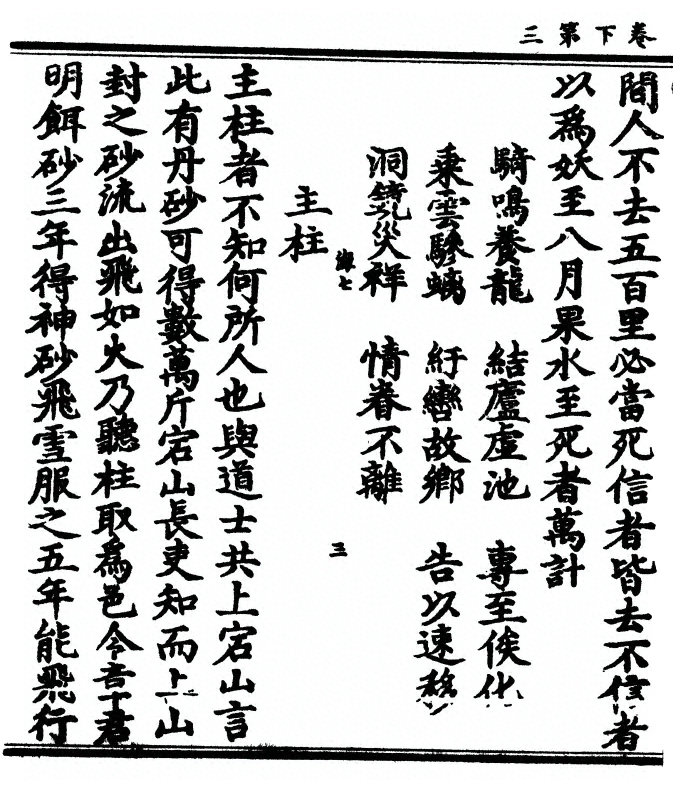 卷下第三
間人不去五百里必當死信者皆去不信者
以為妖至八月果水至死者萬計
騎鳴養龍 結廬虛池 專至俟化
乘雲驂螭 紆轡故鄉 告以速移
洞鏡災祥 情眷不離
三
主柱
主柱者不知何所人也與道士共上宕山言
此有丹砂可得數萬斤宕山長吏知而上山
封之砂流出飛如火乃聽柱取為邑令章君
明餌砂三年得神砂飛雪服之五年能飛行